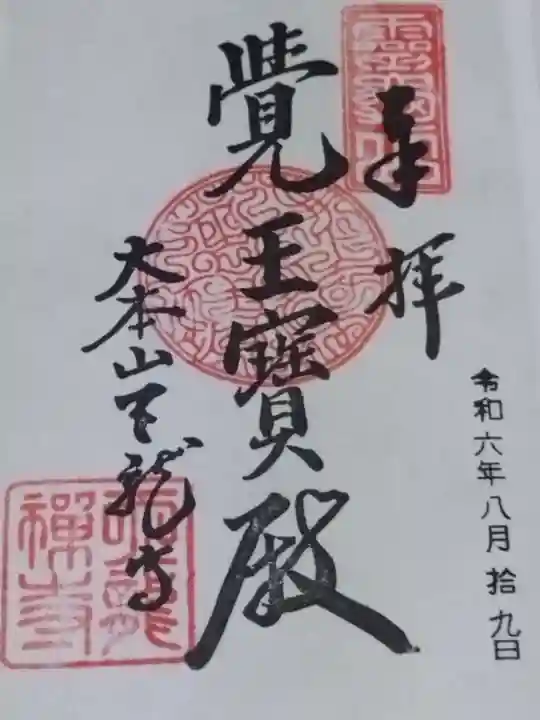 奉拝
令和六年八月拾九日
覺王寶殿
大本山天龍寺